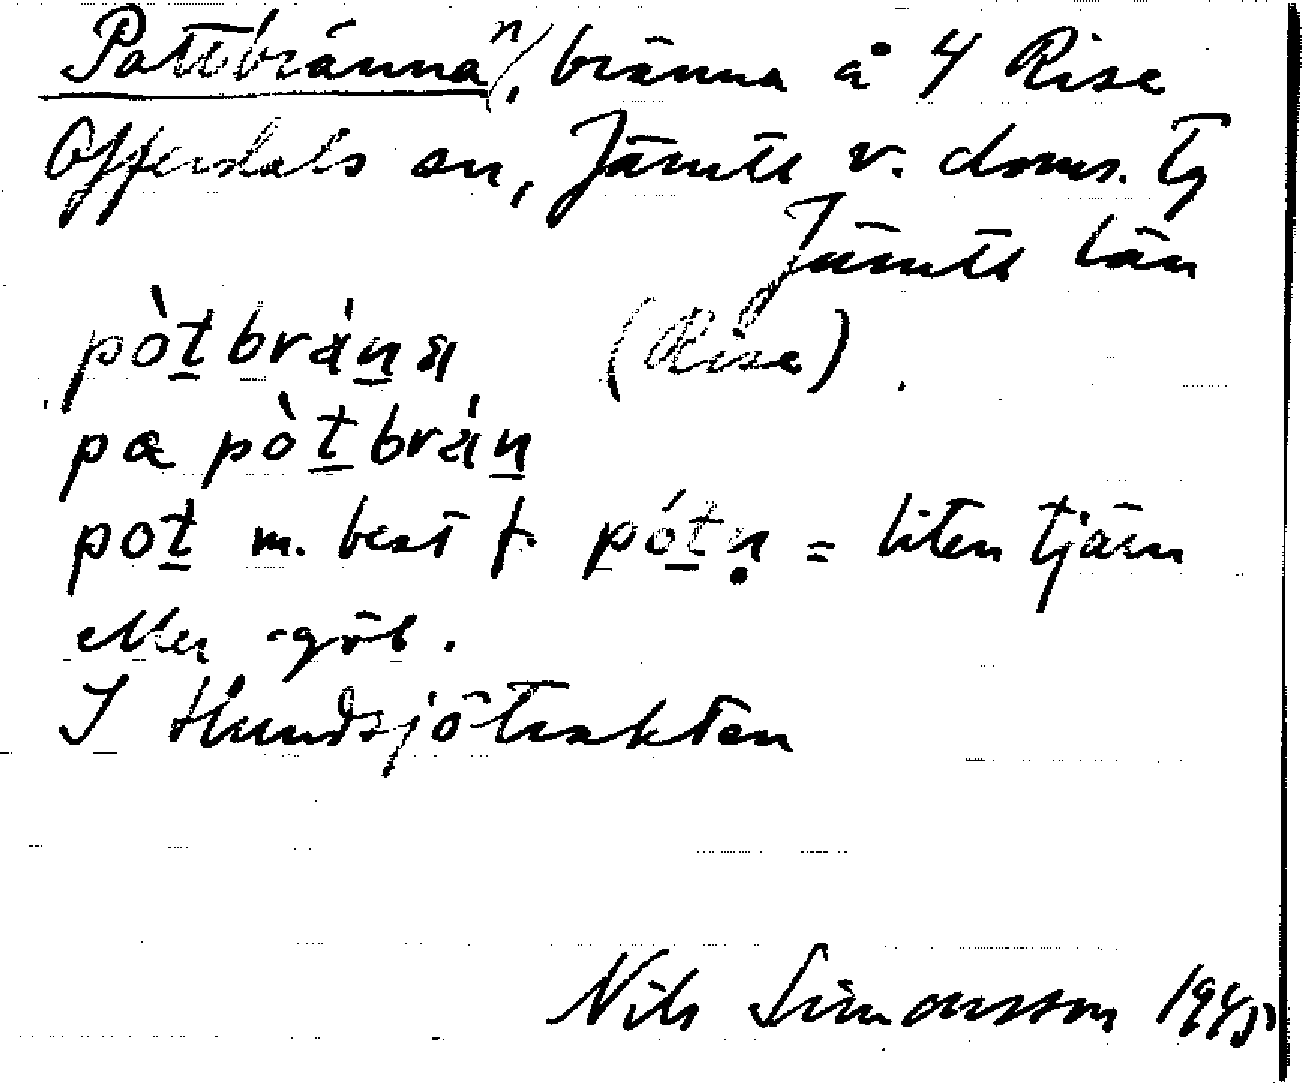 Pottbränna n/, bränna å 4 Rise
Offerdals sn, Jämtl v. doms. tg
Jämtl län
pòt̲brán̲a (Rise).
pa pòt̲brán̲
pot̲ m. best f. pót̲ṇ = liten tjärn
eller -göl.
I Hundsjötrakten
Nils Simonsson